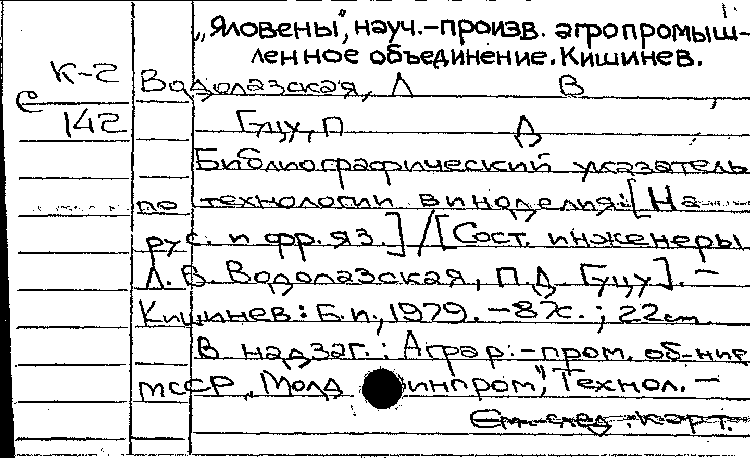 „Яловены", науч.-произв. агропромыш-
ленное объединение. Кишинев.
К-2 Водолазская, Л В
е
142 Гцу, П Д
Библиографический указатель
по технологии виноделия: [На
рус. и фр. яз.] / [Сост. инженеры
Л. В. Водолазская, П. Д. Гцу]. –
Кишинев: Б. и., 1979. – 87с.; 22 см
В надзаг.: Аграр.-пром. об-ние
МССР „Молд винпром", Технол. –
См. след. карт.